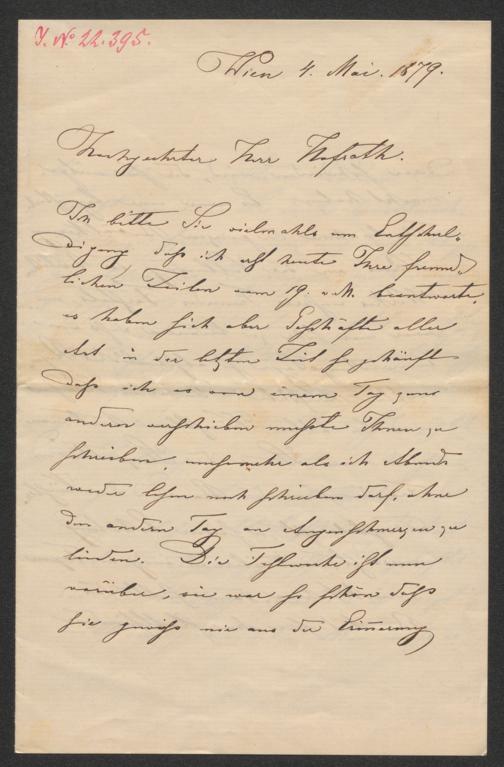 J. No 22.395.
Wien 4. Mai. 1879.
Hochgeehrter Herr Hofrath.
Ich bitte Sie vielmahls um Entschul-
digung, daß ich erst heute Ihre freund-
lichen Zeilen vom 19. v. M. beantworte,
es haben sich aber Geschäfte aller
Art in der letzten Zeit so gehäuft
daß ich es von einem Tag zum
andern verschieben mußte Ihnen zu
schreiben, umsomehr als ich Abends
weder lesen noch schreiben darf, ohne
den andern Tag an Augenschmerzen zu
leiden. Die Festwoche ist nun
vorüber, sie war so schön daß
sie gewiß nie aus der Erinnerung